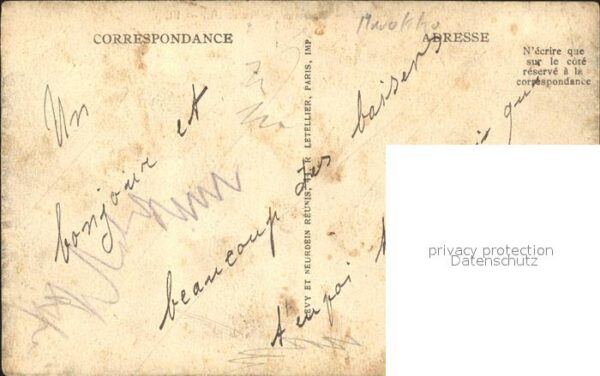 Marokko
CORRESPONDANCE
ADRESSE
N'écrire que
sur le côté
réservé à la
correspondance
Un
bonjour et
beaucoup des baisers
qui
LEVY ET NEURDEIN RÉUNIS, 44, R. LETELLIER, PARIS, IMP.
privacy protection
Datenschutz